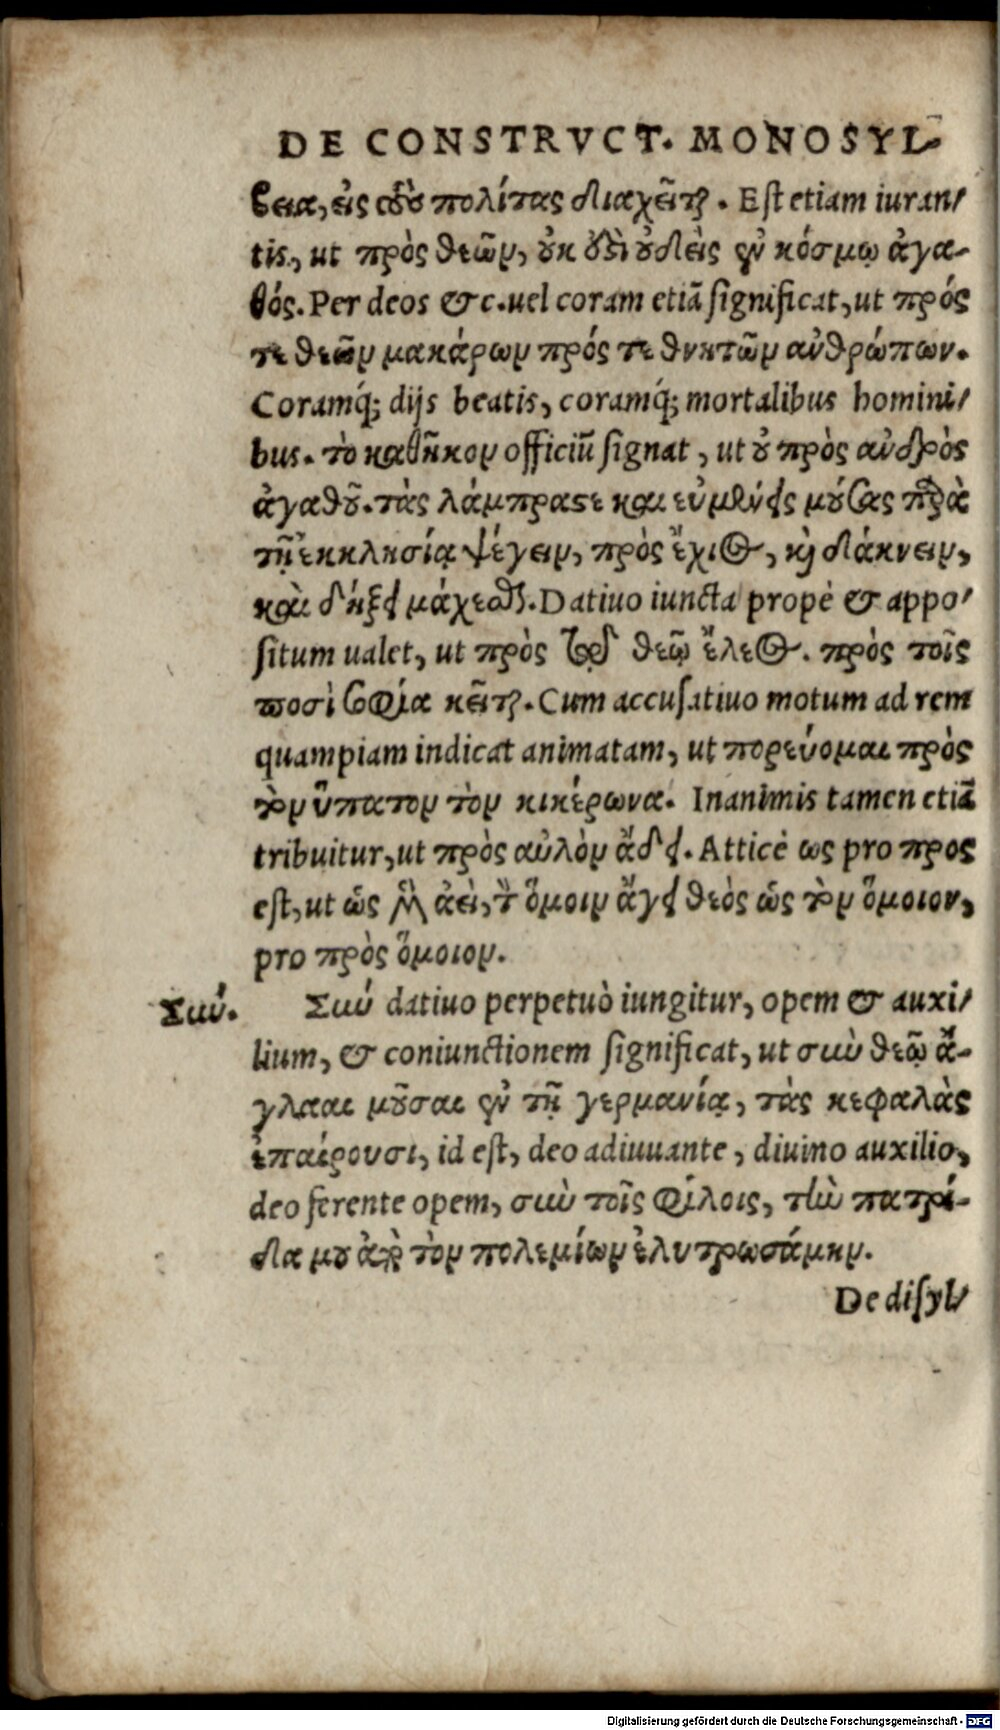 DE CONSTRVCT. MONOSYL-
βεια, εἰς τοὺς πολίτας διαχεῖται. Est etiam iuran/
tis, ut πρὸς θεῶν, οὐκ οὐδεὶς ἐν κόσμῳ ἀγα-
θός. Per deos &c. uel coram etiã significat, ut πρός
τε θεῶν μακάρων πρός τε θνητῶν ἀνθρώπων.
Coramq́; dijs beatis, coramq́; mortalibus homini/
bus. τὸ καθῆκον officiũ signat, ut οὐ πρὸς ἀνδρὸς
ἀγαθοῦ. τὰς λάμπρας τε καὶ μούσας παρὰ
τῇ ἐκκλησίᾳ ψέγειν, πρὸς ἔχιος, καὶ δάκνειν,
καὶ μάχεσθαι. Datiuo iuncta propè & appo/
situm ualet, ut πρὸς θεῷ ἔλεος. πρὸς τοῖς
ποσὶ σοφία κεῖται. Cum accusatiuo motum ad rem
quampiam indicat animatam, ut πορεύομαι πρὸς
τὸν ὕπατον τὸν κικέρωνα. Inanimis tamen etiã
tribuitur, ut πρὸς αὐλὸν ᾄδει. Atticè ως pro προς
est, ut ὡς ἀεὶ, τὸν ὅμοιν ἄγει θεὸς ὡς τὸν ὅμοιον,
pro πρὸς ὅμοιον.
Σύν. Σύν datiuo perpetuò iungitur, opem & auxi/
lium, & coniunctionem significat, ut σὺν θεῷ ἄ-
γλααι μοῦσαι ἐν τῇ γερμανίᾳ, τὰς κεφαλὰς
ἐπαίρουσι, id est, deo adiuuante, diuino auxilio,
deo ferente opem, σὺν τοῖς φίλοις, τὴν πατρί-
δα μου τὸν πολεμίων ἐλυτρωσάμην.
De disyl/
Digitalisierung gefördert durch die Deutsche Forschungsgemeinschaft - DFG